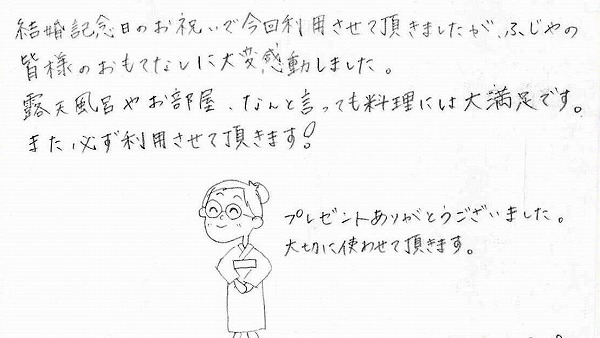 結婚記念日のお祝いで今回利用させて頂きましたが、ふじやの
皆様のおもてなしに大変感動しました。
露天風呂やお部屋、なんと言っても料理には大満足です。
また必ず利用させて頂きます!
プレゼントありがとうございました。
大切に使わせて頂きます。